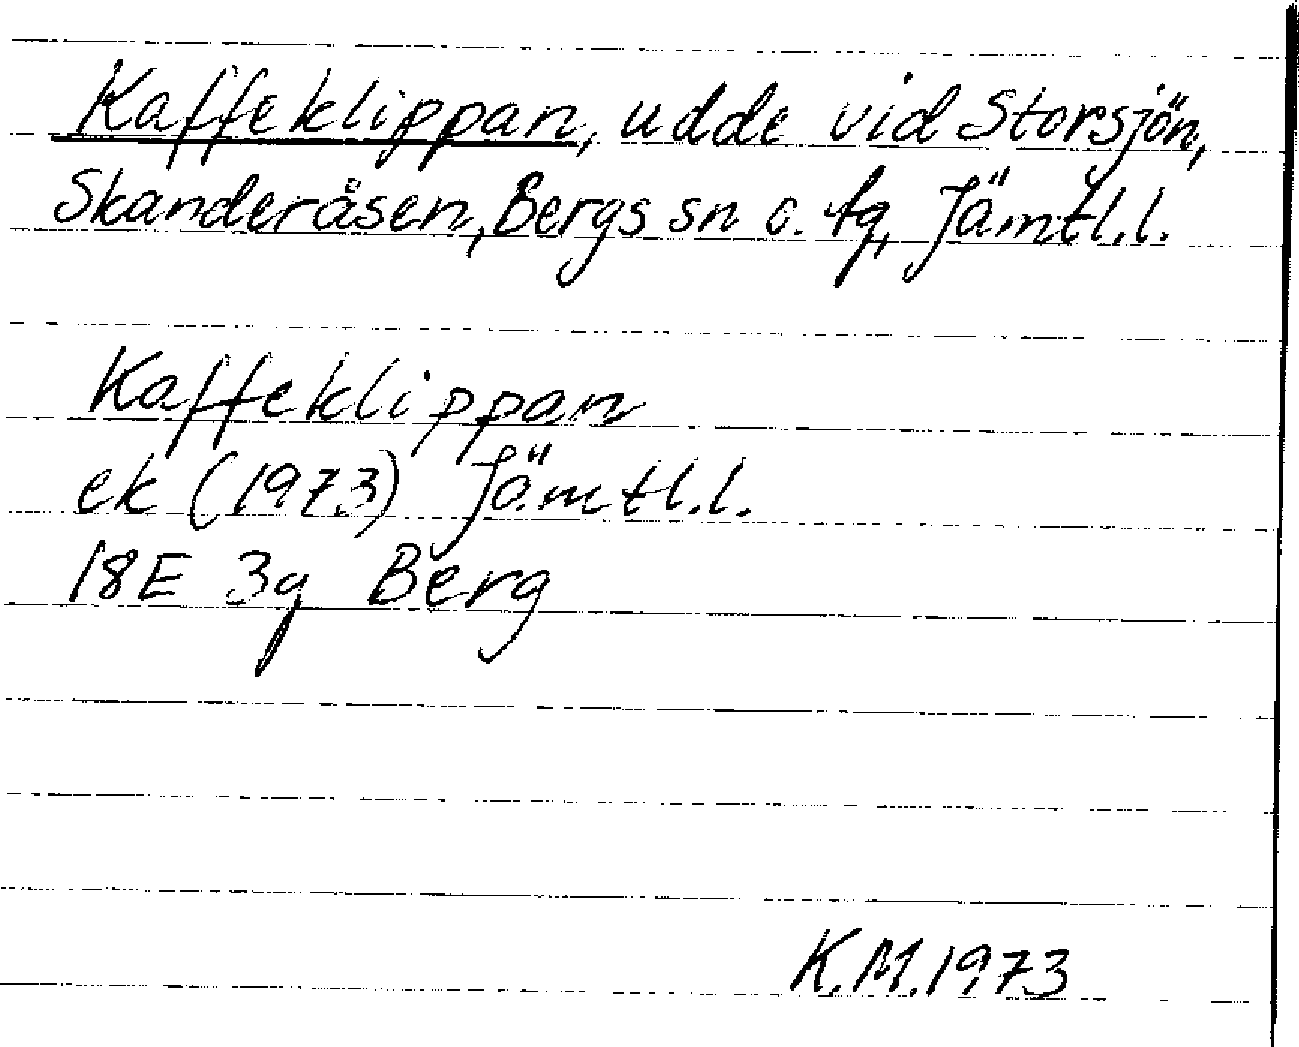 Kaffeklippan, udde vid Storsjön,
Skanderåsen, Bergs sn o. tg, Jämtl.l.
Kaffeklippan
ek (1973) Jämtl.l.
18E 3g Berg
K.M.1973